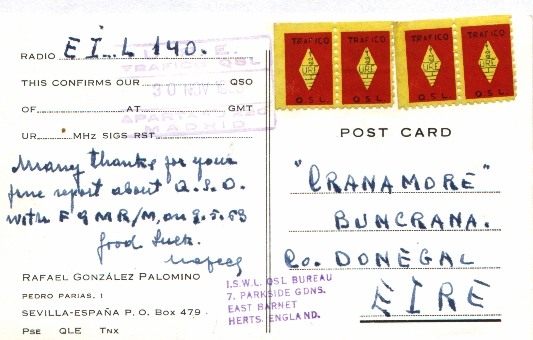 RADIO EI.L 140.
THIS CONFIRMS OUR QSO
OF AT GMT
UR MHz SIGS RST
Many thanks for your
fine report about Q.S.O.
with F9MR/M, on 9.5.53
Good luck.
Rafael
RAFAEL GONZÁLEZ PALOMINO
PEDRO PARIAS, 1
SEVILLA-ESPAÑA P. O. Box 479
PSE QLE TNX
TRAFICO QSL
30 NOV
MADRID
I.S.W.L. QSL BUREAU
7. PARKSIDE GDNS.
EAST BARNET
HERTS. ENGLAND.
TRAFICO TRAFICO TRAFICO TRAFICO
URE URE URE URE
Q.S.L. Q.S.L. Q.S.L. Q.S.L.
POST CARD
"CRANAMORE"
BUNCRANA.
Co. DONEGAL
EIRE